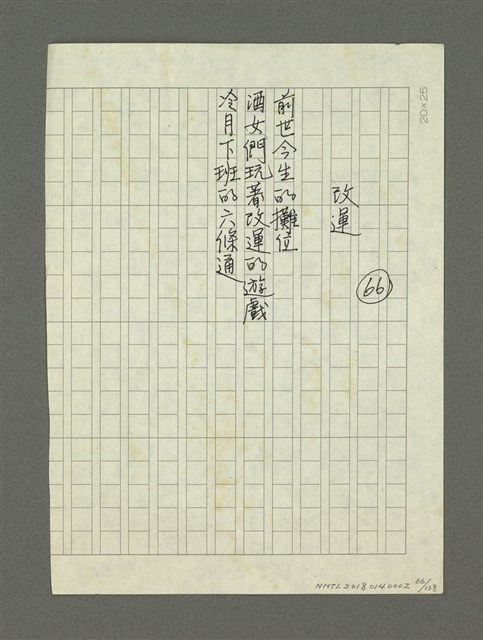 20×25
66
改運
前世今生的攤位
酒女們玩著改運的遊戲
冷月下班的六條通
NMTL20180140002 66/138